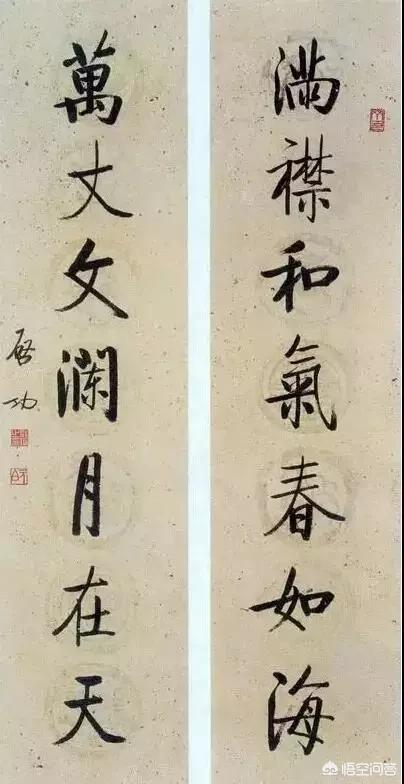 滿襟和氣春如海
萬丈文瀾月在天
啟功
悟空问答